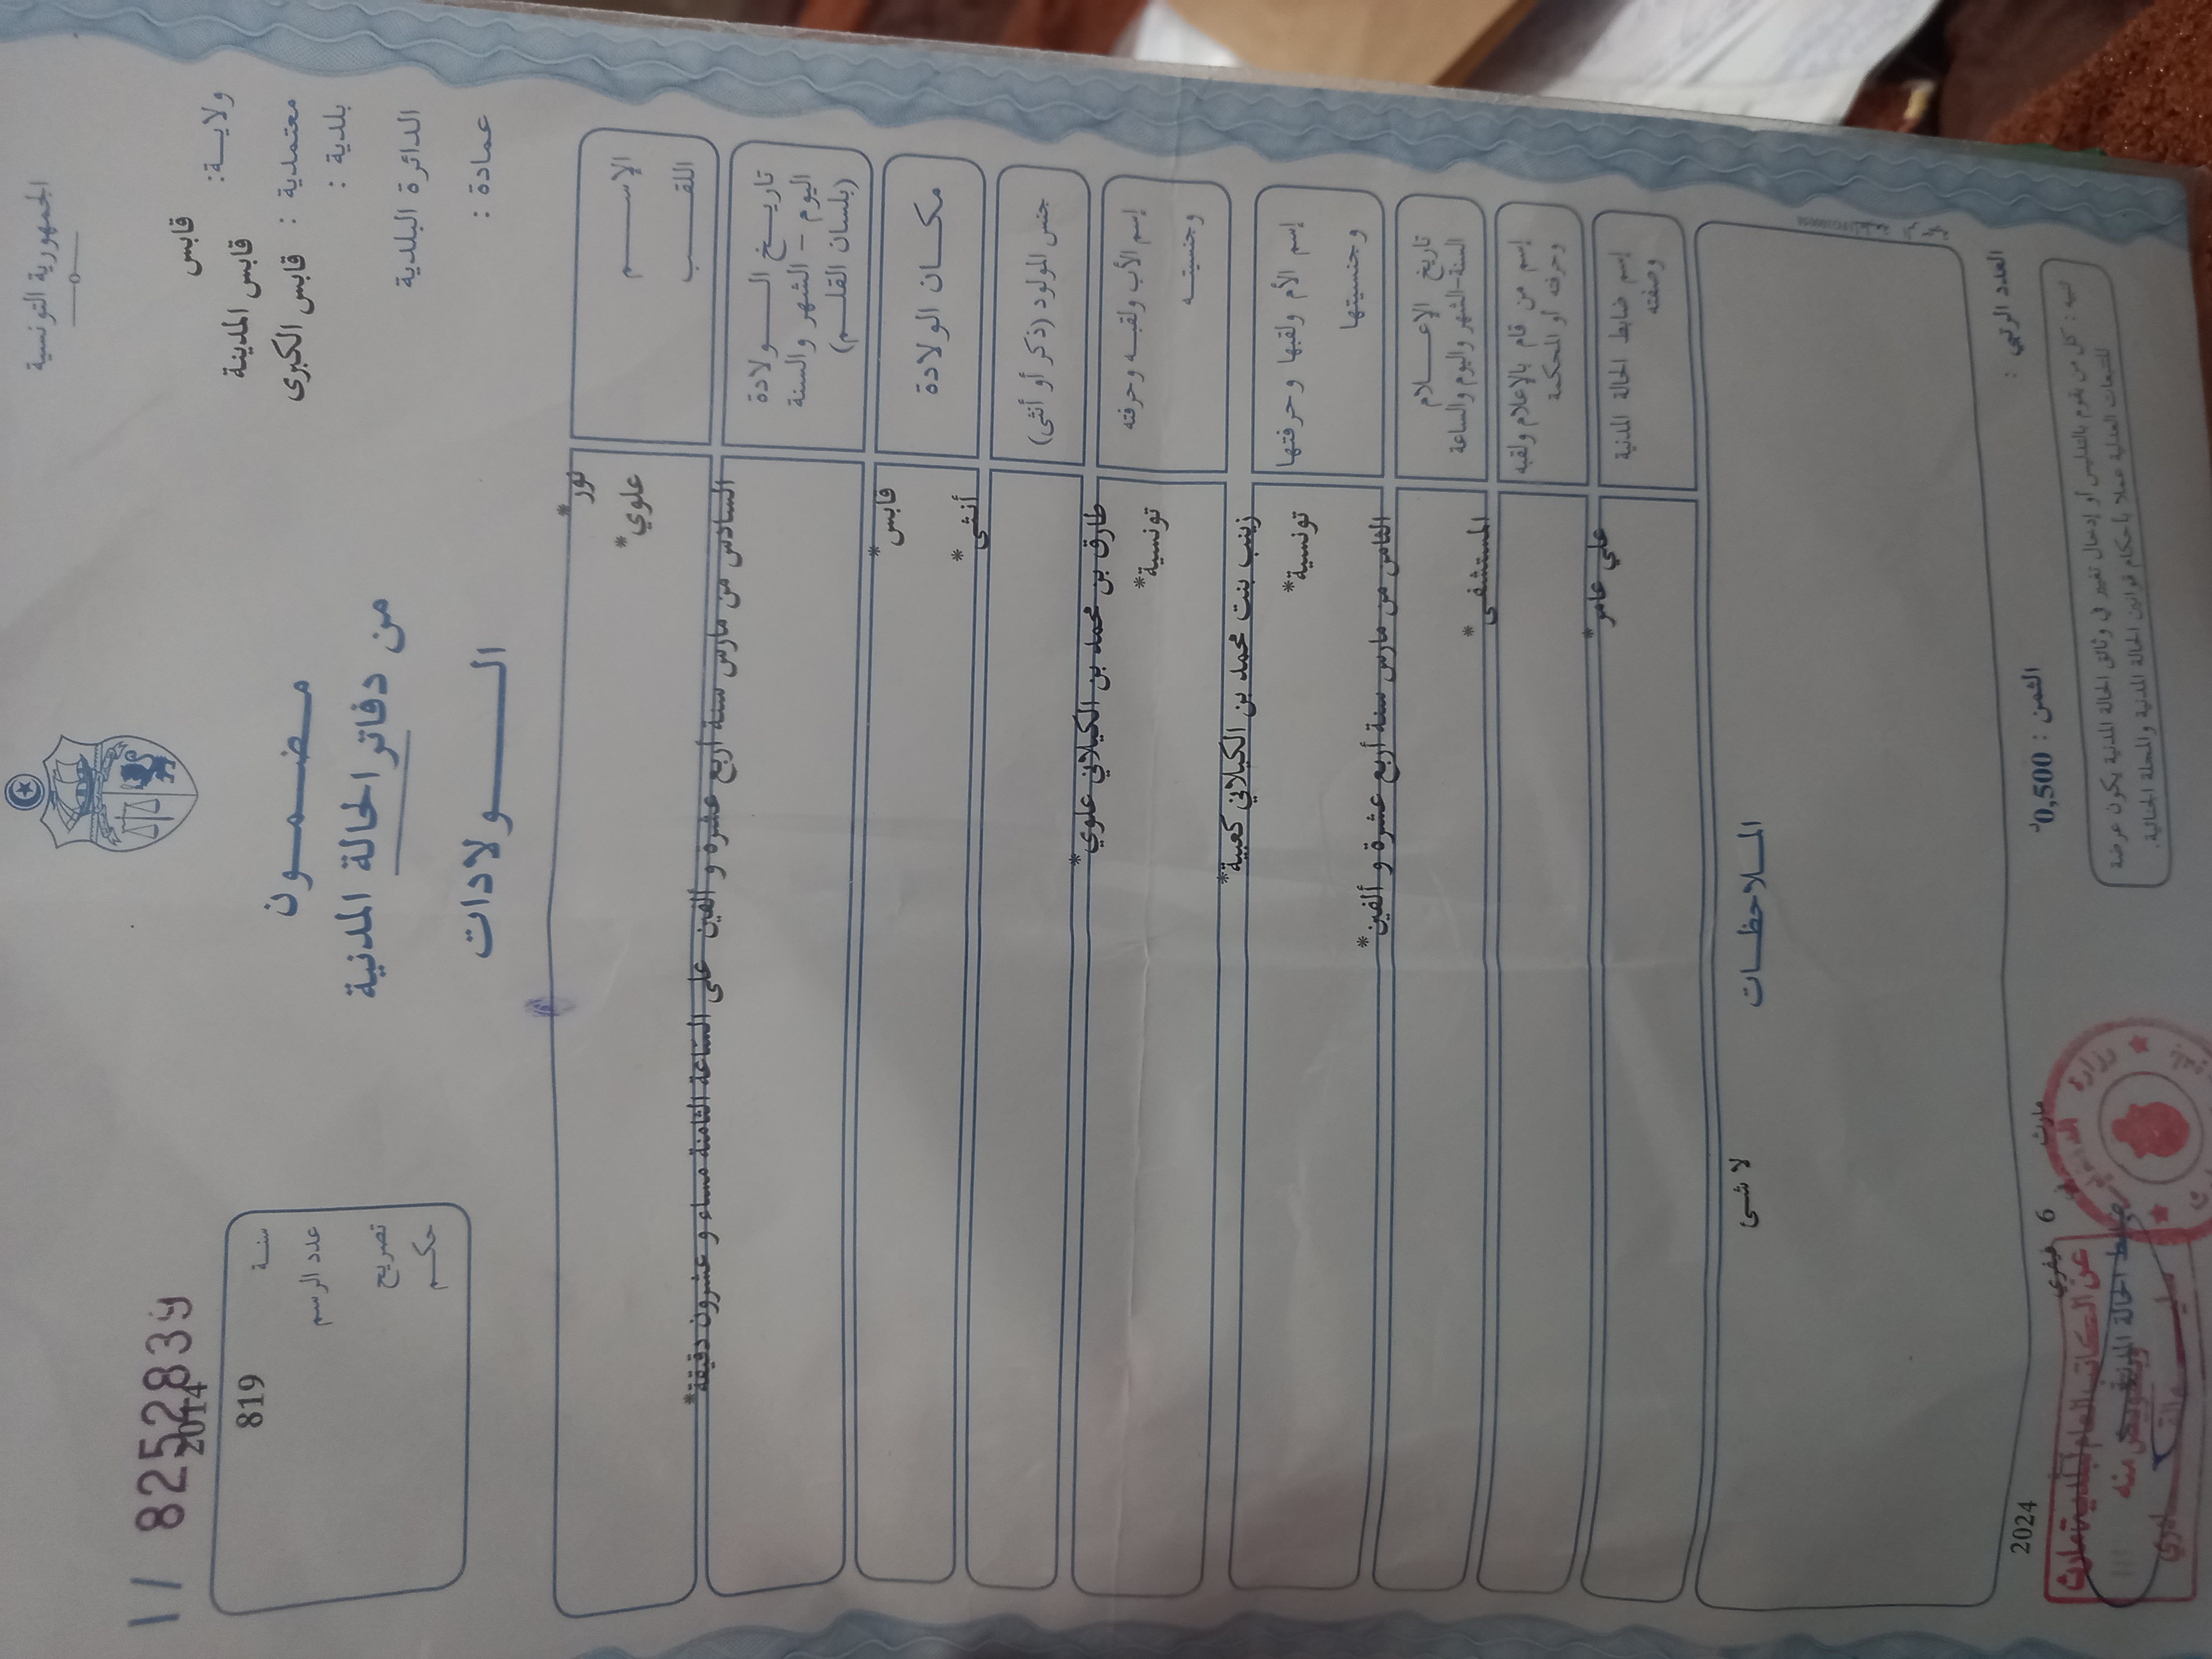 الجمهورية التونسية
ولايـــة: قابس
معتمدية : قابس المدينة
بلدية : قابس الكبرى
الدائرة البلدية
عمادة :
مـضـمـــون
من دفاتر الحالة المدنية
الـــــولادات
825283
2014
سنــة
819
عدد الرسم
تصريح
حكــم
الإســـــم
نور*
اللقـــــب
علوي*
تاريـــخ الــــولادة
اليوم - الشهر والسنة
(بلسان القلــم)
السادس من مارس سنة أربع عشرة و ألفين على الساعة الثامنة مساء و عشرون دقيقة*
مكـــان الولادة
قابس*
جنس المولود (ذكر أو أنثى)
أنثى*
إسم الأب ولقبـه وحرفته
طارق بن محمد بن الكيلاني علوي*
وجنسيتــه
تونسية*
إسم الأم ولقبها وحرفتها
زينب بنت محمد بن الكيلاني كعبية*
وجنسيتها
تونسية*
تاريخ الإعـــلام
السنة-الشهر واليوم والساعة
الثامن من مارس سنة أربع عشرة و ألفين*
إسم من قام بالإعلام ولقبه
وحرفته أو المحكمة
المستشفى*
إسم ضابط الحالة المدنية
وصفته
علي عامر*
المـلاحظـــات
لا شى
العدد الرتبي :
الثمن : 0,500د
مارث 6 فيفري 2024
تنبيه : كل من يقوم بالتدليس أو إدخال تغيير في وثائق الحالة المدنية يكون عرضة
للتتبعات العدلية عملا بأحكام قوانين الحالة المدنية والمجلة الجنائية.
ضابط الحالة المدنية
عن الكاتب العام لبلدية مارث
وبتفويض منه
وزارة